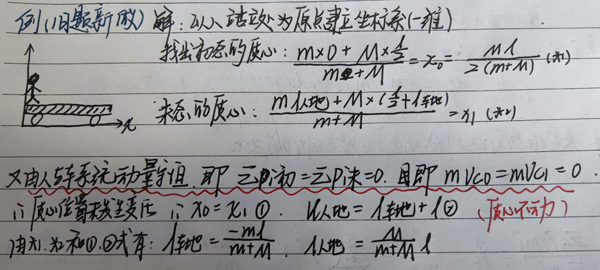 例(旧题新做) 解:以人站立处为原点建立坐标系(一维)
找出初态的质心: \frac{m×0+M×\frac{l}{2}}{m+M}=x₀=\frac{Ml}{2(m+M)} (*1)
末态的质心: \frac{m l人地+M×(\frac{l}{2}+l车地)}{m+M}=x₁ (*2)
x
又由人与车系统动量守恒,即 Σp初=Σp末=0. 且即 mVc₀=mVc₁=0.
∵质心位置未发生变化 ∴x₀=x₁ ①. l人地=l车地+l② (质心不动)
由*1.*2和①.②式有: l车地=\frac{-ml}{m+M}. l人地=\frac{M}{m+M}l